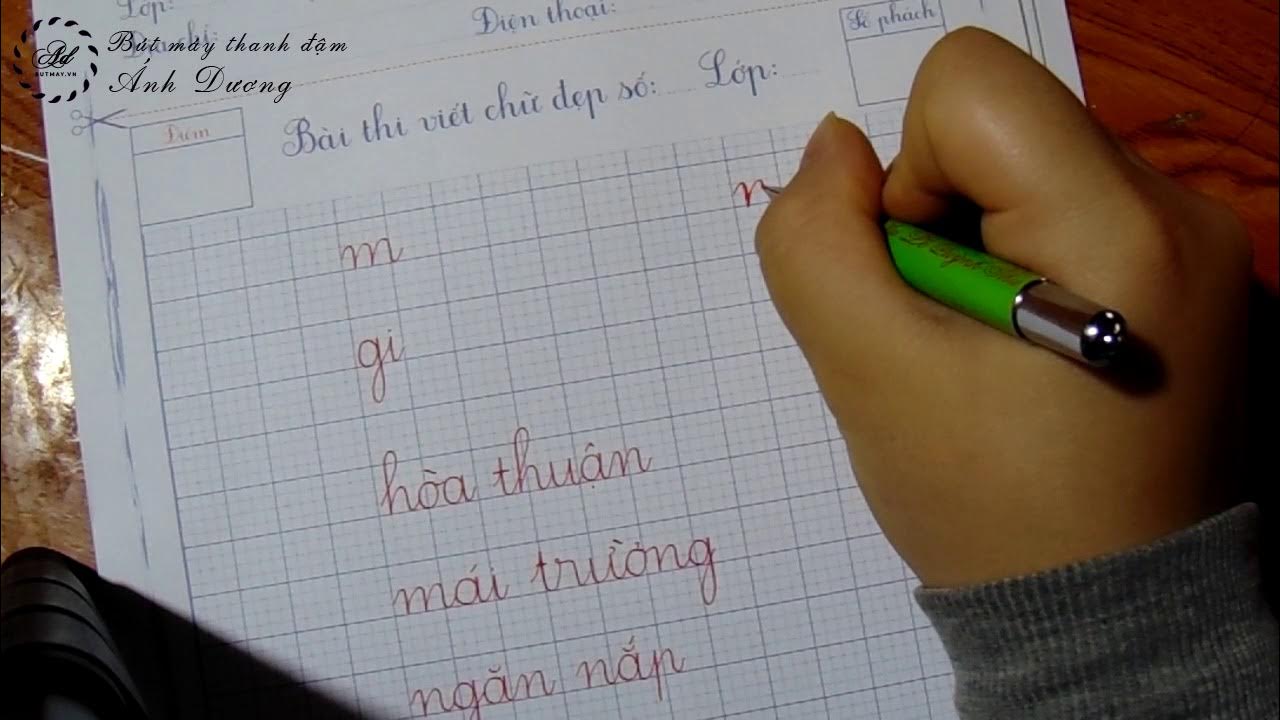 Lớp:
Điện thoại:
Số phách
Ad
BUTMAY.VN
Bút máy thanh đậm
Ánh Dương
Điểm
Bài thi viết chữ đẹp số: Lớp:
m
gi
hòa thuận
mái trường
ngăn nắp